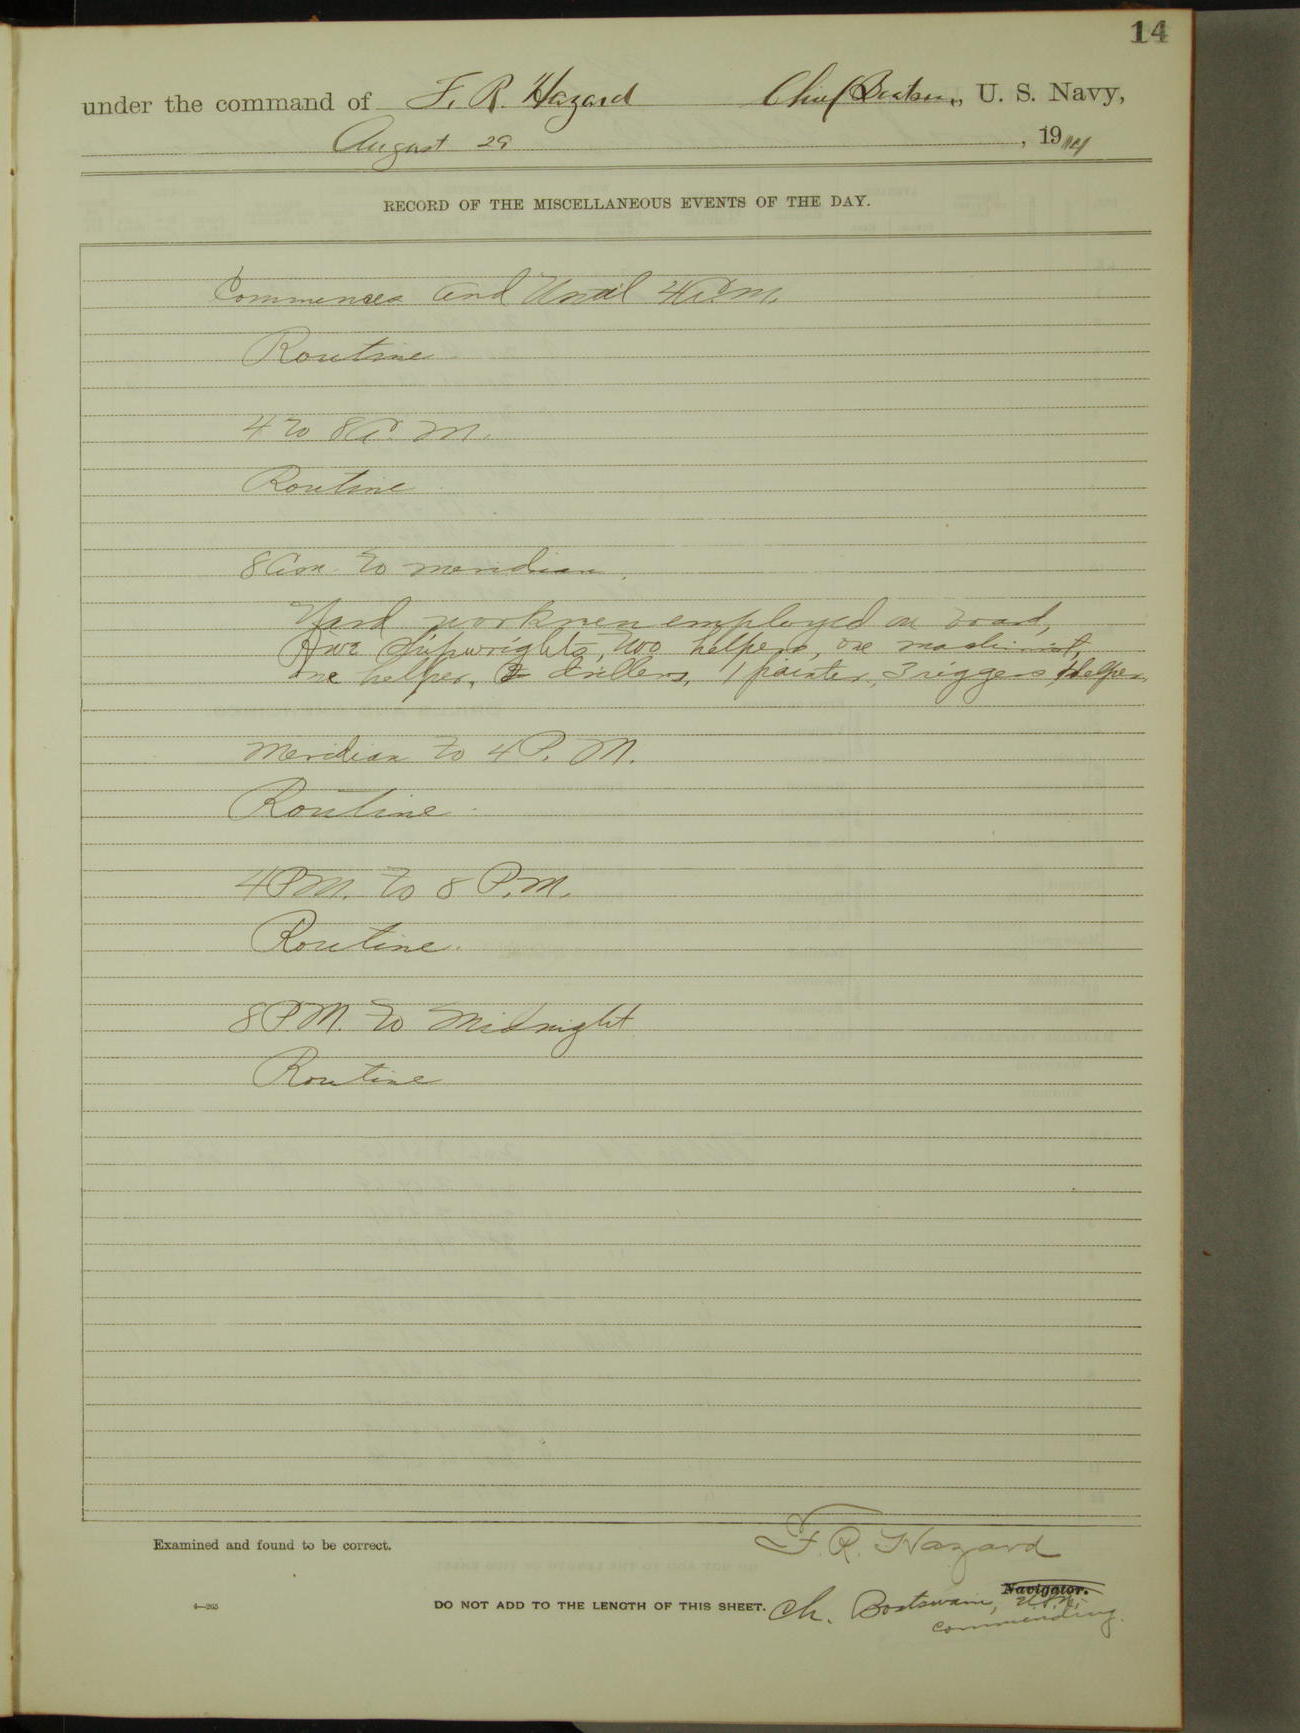 14
under the command of F. R. Hazard Chief Boatsn., U. S. Navy,
August 29, 1914
RECORD OF THE MISCELLANEOUS EVENTS OF THE DAY.
Commences and Until 4 A.M.
Routine
4 to 8 A. M.
Routine
8 Am. to meridian.
Yard workmen employed on board,
Five shipwrights, two helpers, one machinist,
one helper, 2 drillers, 1 painter, 3 riggers, 1 helper.
Meridian to 4 P. M.
Routine
4 PM. to 8 P.M.
Routine.
8 PM. to Midnight
Routine
Examined and found to be correct.
F. R. Hazard
Navigator.
4—265
DO NOT ADD TO THE LENGTH OF THIS SHEET.
Ch. Boatswain, U.S.N.
Commanding.